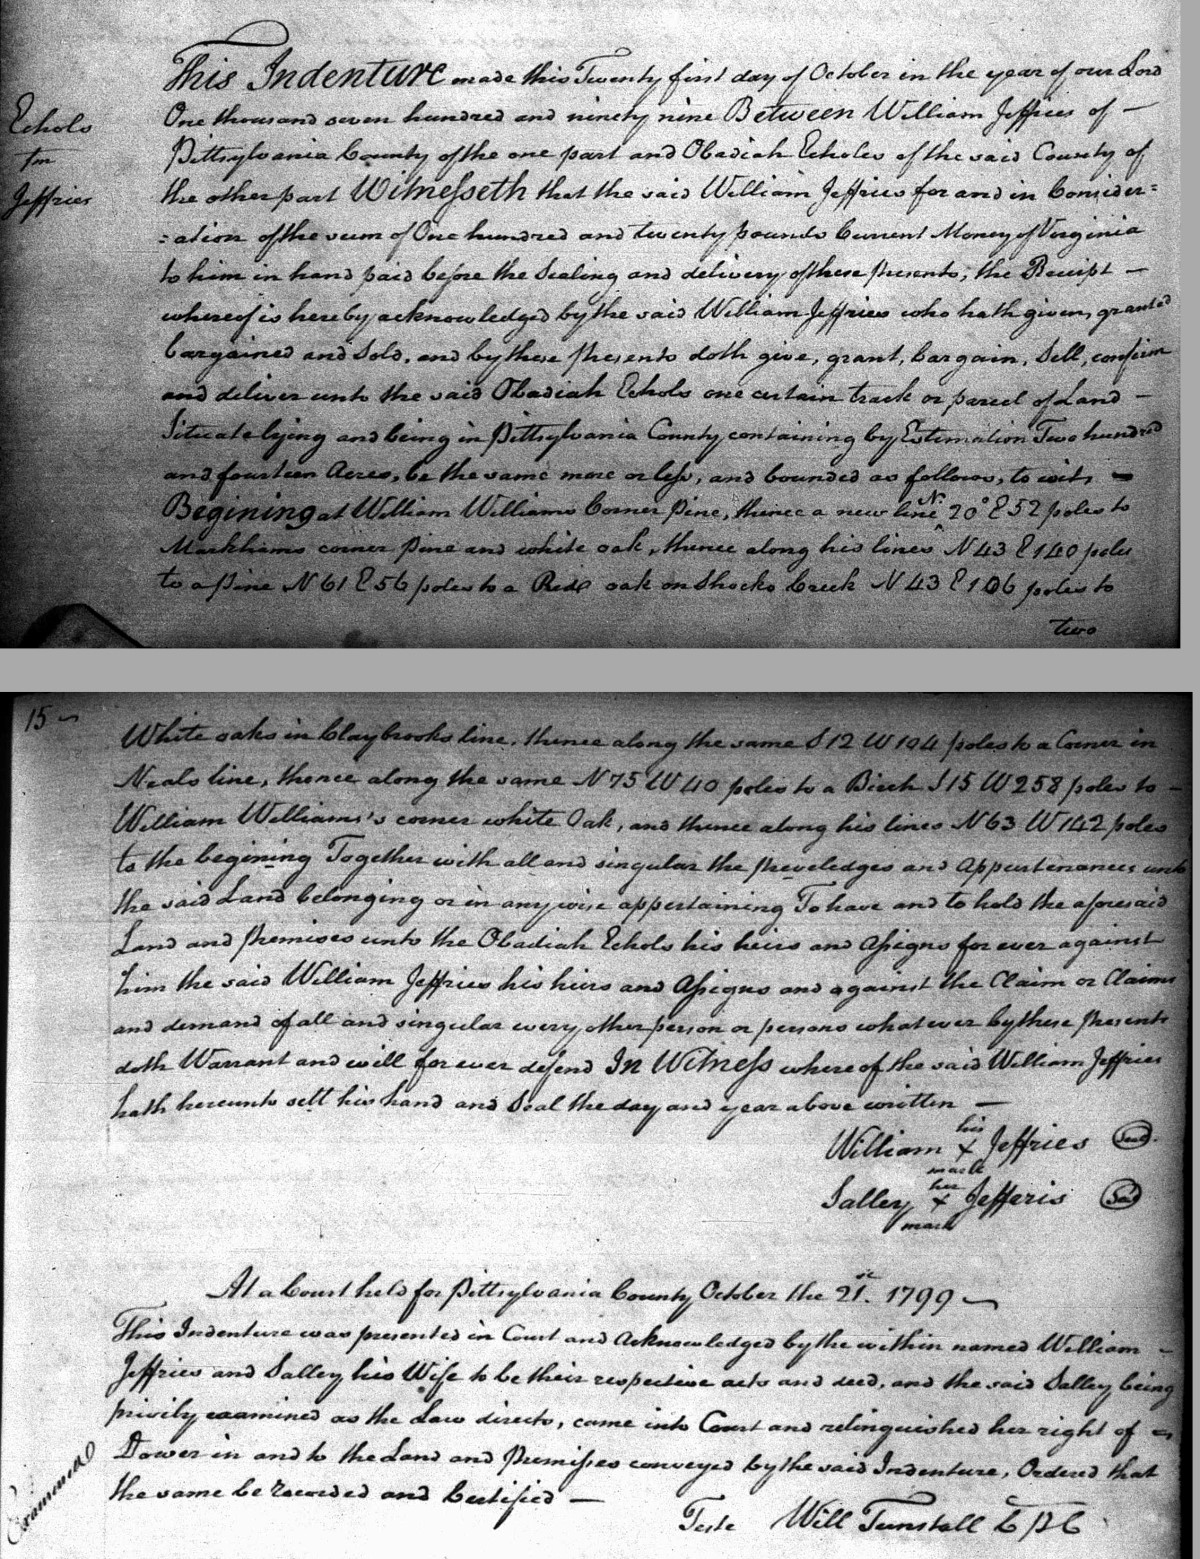 Echols
fm
Jeffries
This Indenture made this Twenty first day of October in the year of our Lord
One thousand seven hundred and ninety nine Between William Jeffries of —
Pittsylvania County of the one part and Obadiah Echoles of the said County of
the other part Witnesseth that the said William Jeffries for and in Consider=
=ation of the sum of One hundred and twenty pounds Current Money of Virginia
to him in hand paid before the Sealing and delivery of these Presents, the Receipt —
whereof is hereby acknowledged by the said William Jeffries who hath given, granted
bargained and Sold, and by these Presents doth give, grant, bargain, Sell, confirm
and deliver unto the said Obadiah Echols one certain track or parcel of Land —
Situate lying and being in Pittsylvania County containing by Estimation Two hundred
and fourteen Acres, be the same more or less, and bounded as follows, to wit, —
Begining at William Williams Corner Pine, thence a new line N. 20° E 52 poles to
Markhams corner Pine and white oak, thence along his lines N 43 E 140 poles
to a Pine N 61 E 56 poles to a Red oak on Shocks Creek N 43 E 106 poles to
two
15
White oaks in Claybrooks line, thence along the same S 12 W 194 poles to a Corner in
Neals line, thence along the same N 75 W 40 poles to a Birch S 15 W 258 poles to —
William Williams's corner white Oak, and thence along his lines N 63 W 142 poles
to the begining Together with all and singular the Preveledges and Appurtenances unto
the said Land belonging or in any wise appertaining To have and to hold the aforesaid
Land and Premises unto the Obadiah Echols his heirs and Assigns for ever against
him the said William Jeffries his heirs and Assigns and against the Claim or Claims
and demand of all and singular every other person or persons whatever by these Presents
doth Warrant and will for ever defend In Witness where of the said William Jeffries
hath hereunto sett his hand and Seal the day and year above written —
his
William X Jeffries Seal
mark
her
Salley X Jefferis Seal
mark
At a Court held for Pittsylvania County October the 21st. 1799
This Indenture was presented in Court and Acknowledged by the within named William —
Jeffries and Salley his Wife to be their respective acts and deed, and the said Salley being
privily examined as the Law directs, came into Court and relinquished her right of
Dower in and to the Land and Premisses conveyed by the said Indenture, Ordered that
the same be Recorded and Certified —
Examined
Teste Will Tunstall C P C